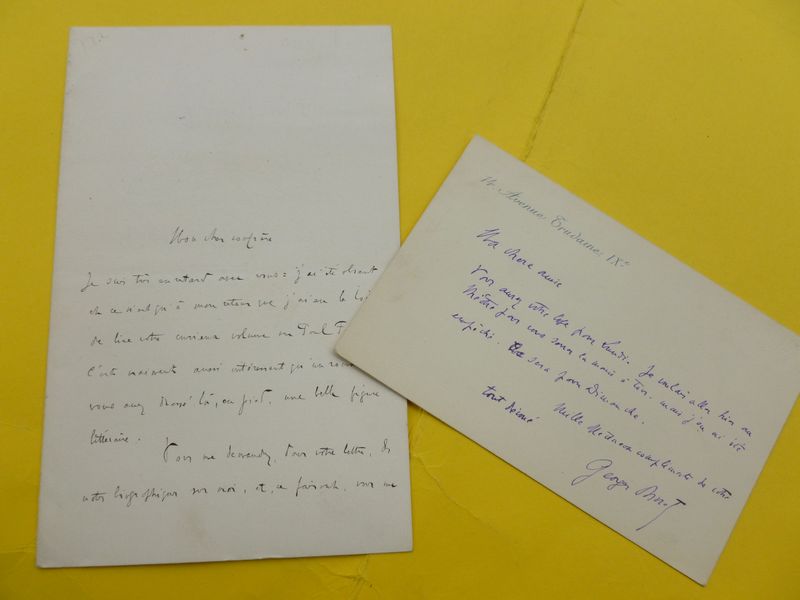 Mon cher confrère
Je suis très en retard avec vous : j'ai été absent
et ce n'est qu'à mon retour que j'ai eu le
de lire votre curieux volume sur Paul
C'est vraiment aussi intéressant qu'un
vous avez dressé là, en pied, une belle figure
littéraire.
Vous me demandez, dans votre lettre, des
notes biographiques sur moi, et, ce faisant, vous me
14, Avenue Trudaine, IXe
Ma chère amie
Vous aurez votre loge pour lundi. Je voulais aller hier au
théâtre pour vous la à mais j'en ai été
empêché. sera pour Dimanche.
Mille compliments de votre
tout dévoué
Georges